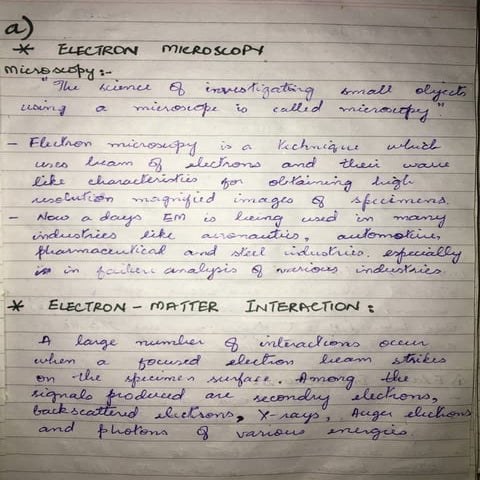 a)
* ELECTRON MICROSCOPY
Microscopy:-
"The science of investigating small objects
using a microscope is called microscopy".
- Electron microscopy is a technique which
uses beam of electrons and their wave
like characteristics for obtaining high
resolution magnified images of specimens.
- Now a days EM is being used in many
industries like aeronautics, automotive,
pharmaceutical and steel industries. especially
in failure analysis of various industries.
* ELECTRON - MATTER INTERACTION :
A large number of interactions occur
when a focused electron beam strikes
on the specimen surface. Among the
signals produced are secondry electrons,
backscattered electrons, X-rays, Auger electrons
and photons of various energies.